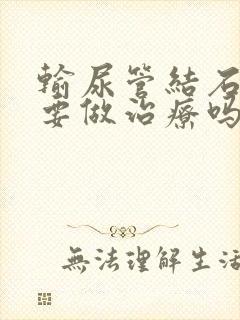 輸尿管結石
要做治療嗎
無法理解生活